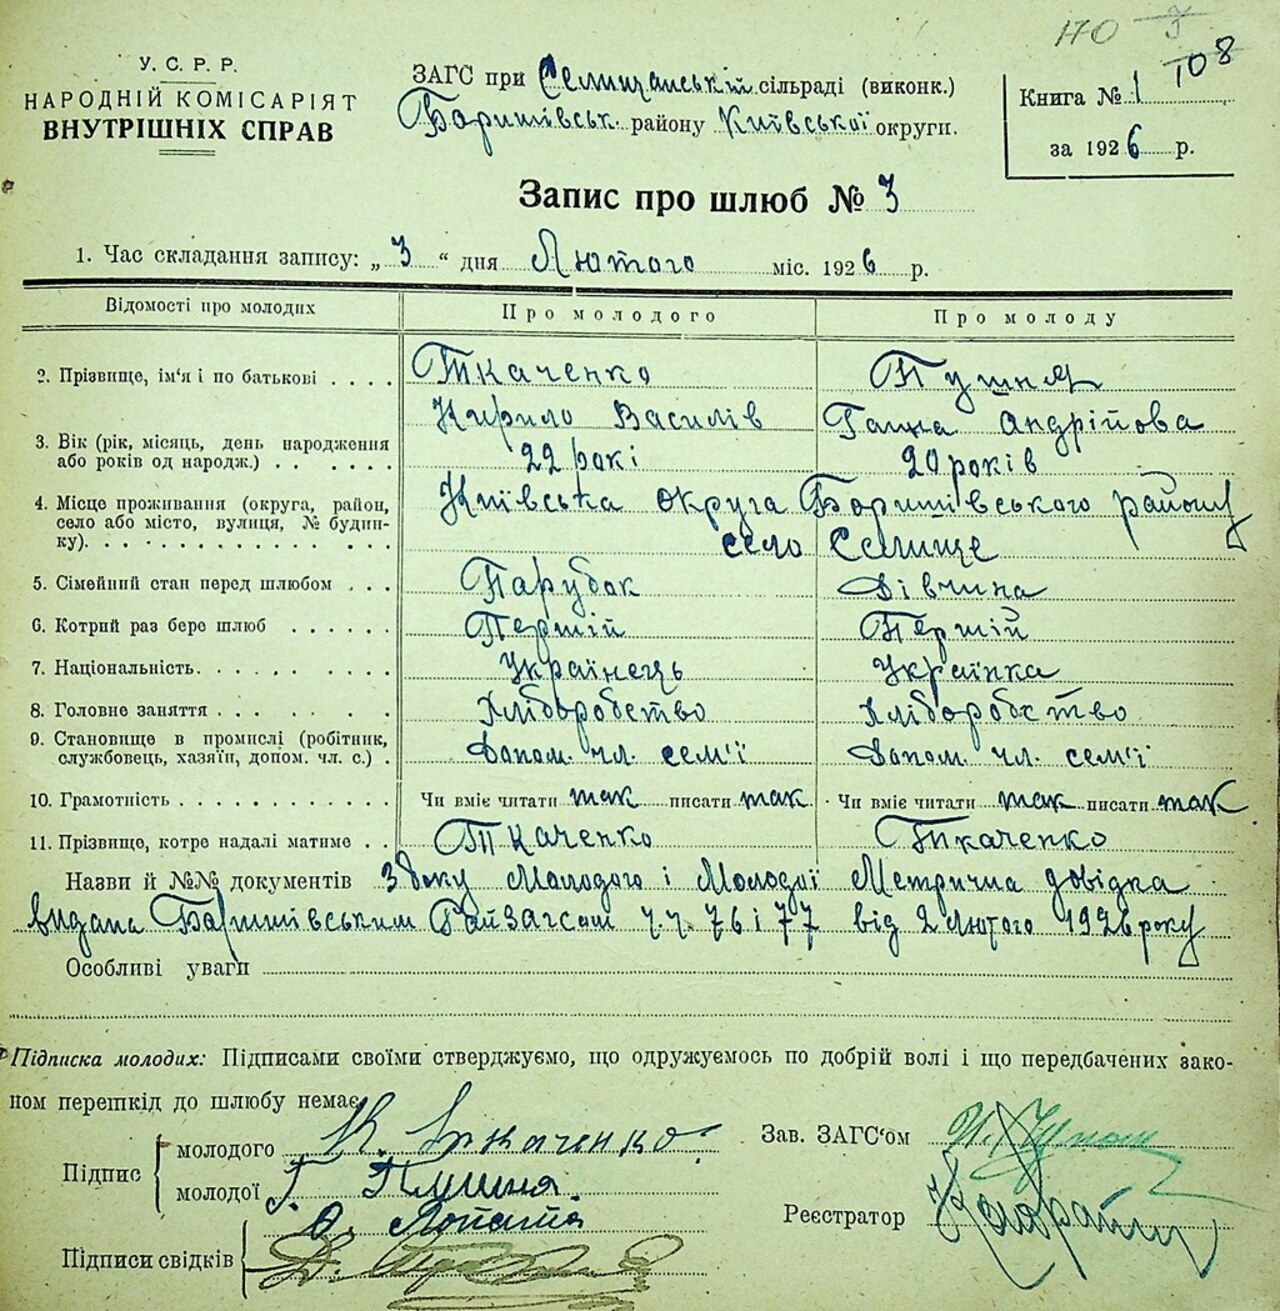 170 3
108
У. С. Р. Р.
НАРОДНІЙ КОМІСАРІЯТ
ВНУТРІШНІХ СПРАВ
ЗАГС при Селищанській сільраді (виконк.)
Баришівськ. району Київської округи.
Книга № 1
за 1926 р.
Запис про шлюб № 3
1. Час складання запису: „3“ дня Лютого міс. 1926 р.
Відомості про молодих Про молодого Про молоду
2. Прізвище, ім'я і по батькові . . . . Ткаченко Пушня
Кирило Василів Ганна Андрійова
3. Вік (рік, місяць, день народження
або років од народж.) . . . . . . 22 рокі 20 років
4. Місце проживання (округа, район, Київська округа Баришівського району
село або місто, вулиця, № будин-
ку). . . . . . . . . . . . . . село Селище
5. Сімейний стан перед шлюбом . . . Парубок Дівчина
6. Котрий раз бере шлюб . . . . . . Першій Першій
7. Національність. . . . . . . . . . Українець Українка
8. Головне заняття . . . . . . . . Хліборобство Хліборобство
9. Становище в промислі (робітник,
службовець, хазяїн, допом. чл. с.) . Допом. чл. сем'ї Допом. чл. сем'ї
10. Грамотність . . . . . . . . . . . . Чи вміє читати так писати так Чи вміє читати так писати так
11. Прізвище, котре надалі матиме . . Ткаченко Ткаченко
Назви й №№ документів З боку Молодого і Молодої Метрична довідка
видана Баришівським РайЗагсом ч.ч. 76 і 77 від 2 Лютого 1926 року
Особливі уваги
Підписка молодих: Підписами своїми стверджуємо, що одружуємось по добрій волі і що передбачених зако-
ном перешкід до шлюбу немає.
Підпис молодого К. Ткаченко.
молодої Г. Пушня.
Зав. ЗАГС'ом
Підписи свідків О. Лопата
Д.
Реєстратор